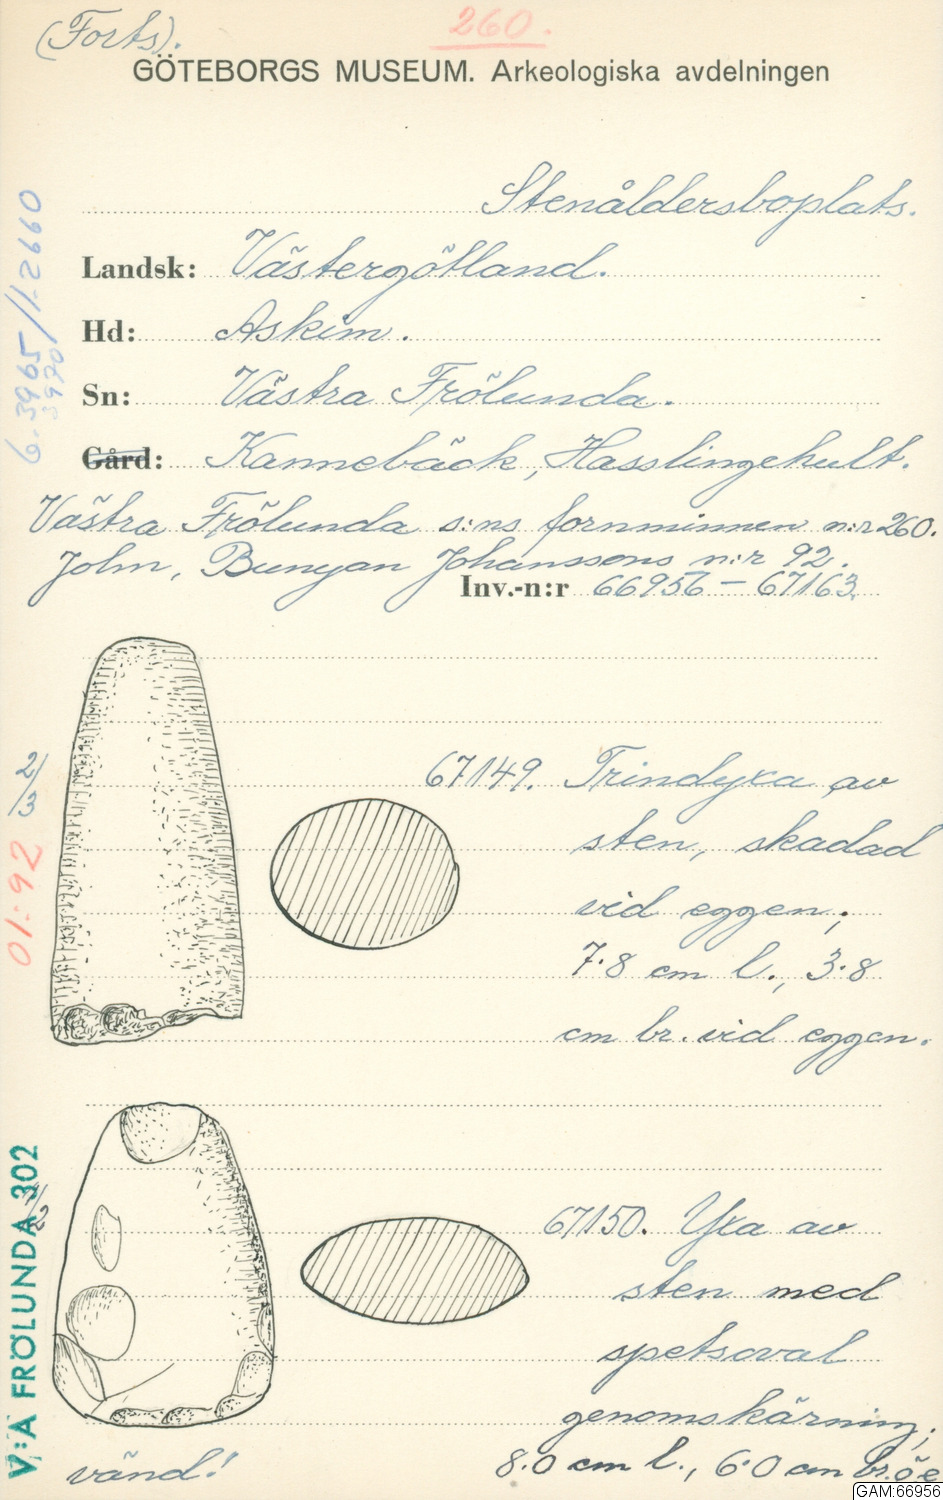 (Forts).
260.
GÖTEBORGS MUSEUM. Arkeologiska avdelningen
Stenåldersboplats.
Landsk: Västergötland.
Hd: Askim.
Sn: Västra Frölunda.
Gård: Kannebäck, Hasslingehult.
Västra Frölunda s:ns fornminnen n:r 260.
John, Bunyan Johanssons n:r 92.
Inv.-n:r 66956 – 67163.
67149. Trindyxa av
sten, skadad
vid eggen;
7.8 cm l., 3.8
cm br. vid eggen.
67150. Yxa av
sten med
spetsoval
genomskärning;
8.0 cm l., 6.0 cm br. ö e
vänd!
6.3965/1.2660
3970
2/3
01:92
V:A FRÖLUNDA 302
GAM:66956